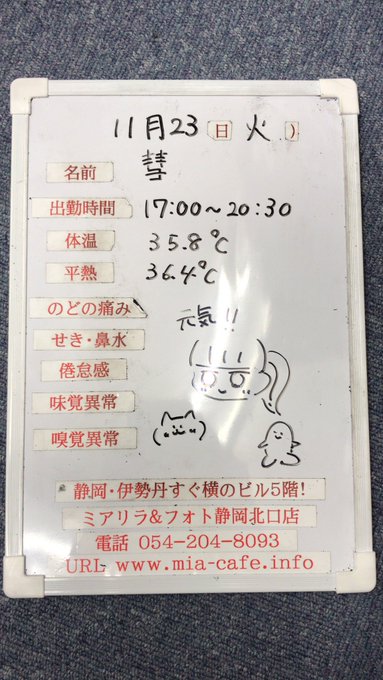 11月23日 火)
名前 彗
出勤時間 17:00~20:30
体温 35.8℃
平熱 36.4℃
のどの痛み
せき・鼻水
元気!!
倦怠感
味覚異常
嗅覚異常
静岡・伊勢丹すぐ横のビル5階!
ミアリラ&フォト静岡北口店
電話 054-204-8093
URL www.mia-cafe.info